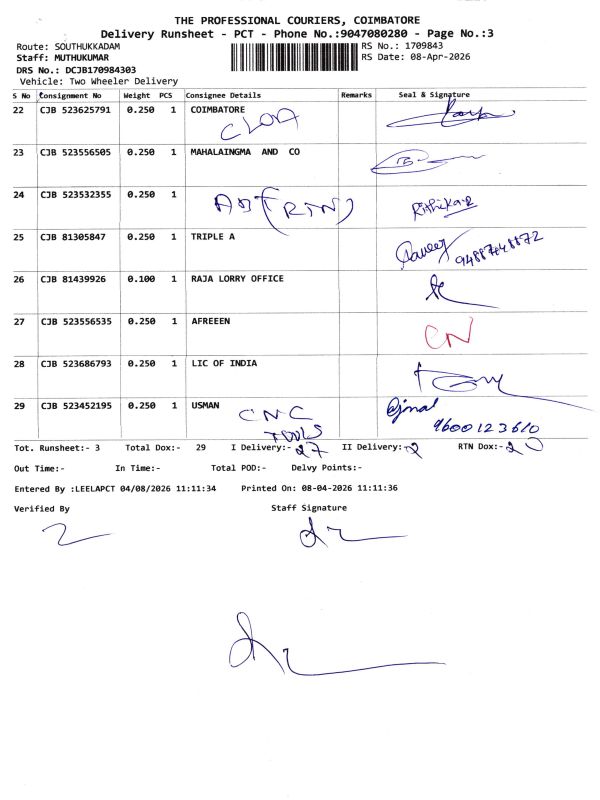 THE PROFESSIONAL COURIERS, COIMBATORE
Delivery Runsheet - PCT - Phone No.:9047080280 - Page No.:3
Route: SOUTHUKKADAM RS No.: 1709843
Staff: MUTHUKUMAR RS Date: 08-Apr-2026
DRS No.: DCJB170984303
Vehicle: Two Wheeler Delivery
S No Consignment No Weight PCS Consignee Details Remarks Seal & Signature
22 CJB 523625791 0.250 1 COIMBATORE
23 CJB 523556505 0.250 1 MAHALAINGMA AND CO
24 CJB 523532355 0.250 1
25 CJB 81305847 0.250 1 TRIPLE A
26 CJB 81439926 0.100 1 RAJA LORRY OFFICE
27 CJB 523556535 0.250 1 AFREEEN CN
28 CJB 523686793 0.250 1 LIC OF INDIA
29 CJB 523452195 0.250 1 USMAN CNC TOOLS Ajmal 9600123610
Tot. Runsheet:- 3 Total Dox:- 29 I Delivery:- 27 II Delivery:- 2 RTN Dox:-
Out Time:- In Time:- Total POD:- Delvy Points:-
Entered By :LEELAPCT 04/08/2026 11:11:34 Printed On: 08-04-2026 11:11:36
Verified By Staff Signature